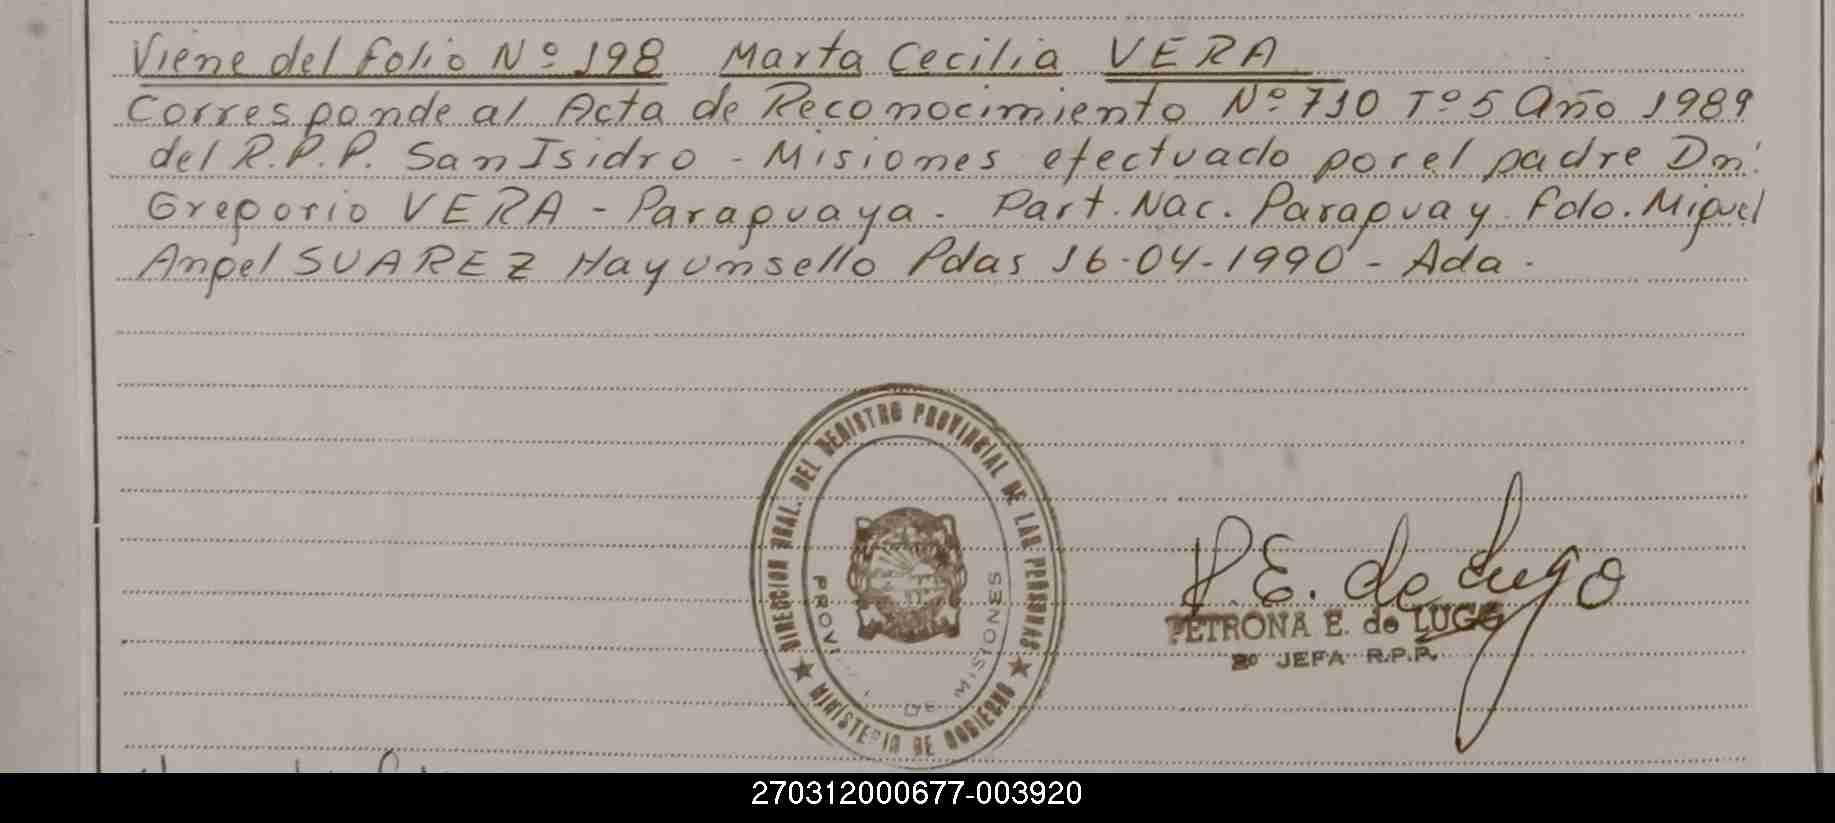 Viene del folio Nº 198 Marta Cecilia VERA
Corresponde al Acta de Reconocimiento Nº 710 Tº 5 Año 1989
del R.P.P. San Isidro - Misiones efectuado por el padre Dn.
Gregorio VERA - Paraguaya. Part. Nac. Paraguay. Fdo. Miguel
Angel SUAREZ Hay un sello Pdas 16-04-1990 - Ada.
DIRECCION GRAL. DEL REGISTRO PROVINCIAL DE LAS PERSONAS
MINISTERIO DE GOBIERNO
DE MISIONES
P.E. de Lugo
PETRONA E. de LUGO
2º JEFA R.P.P.
270312000677-003920